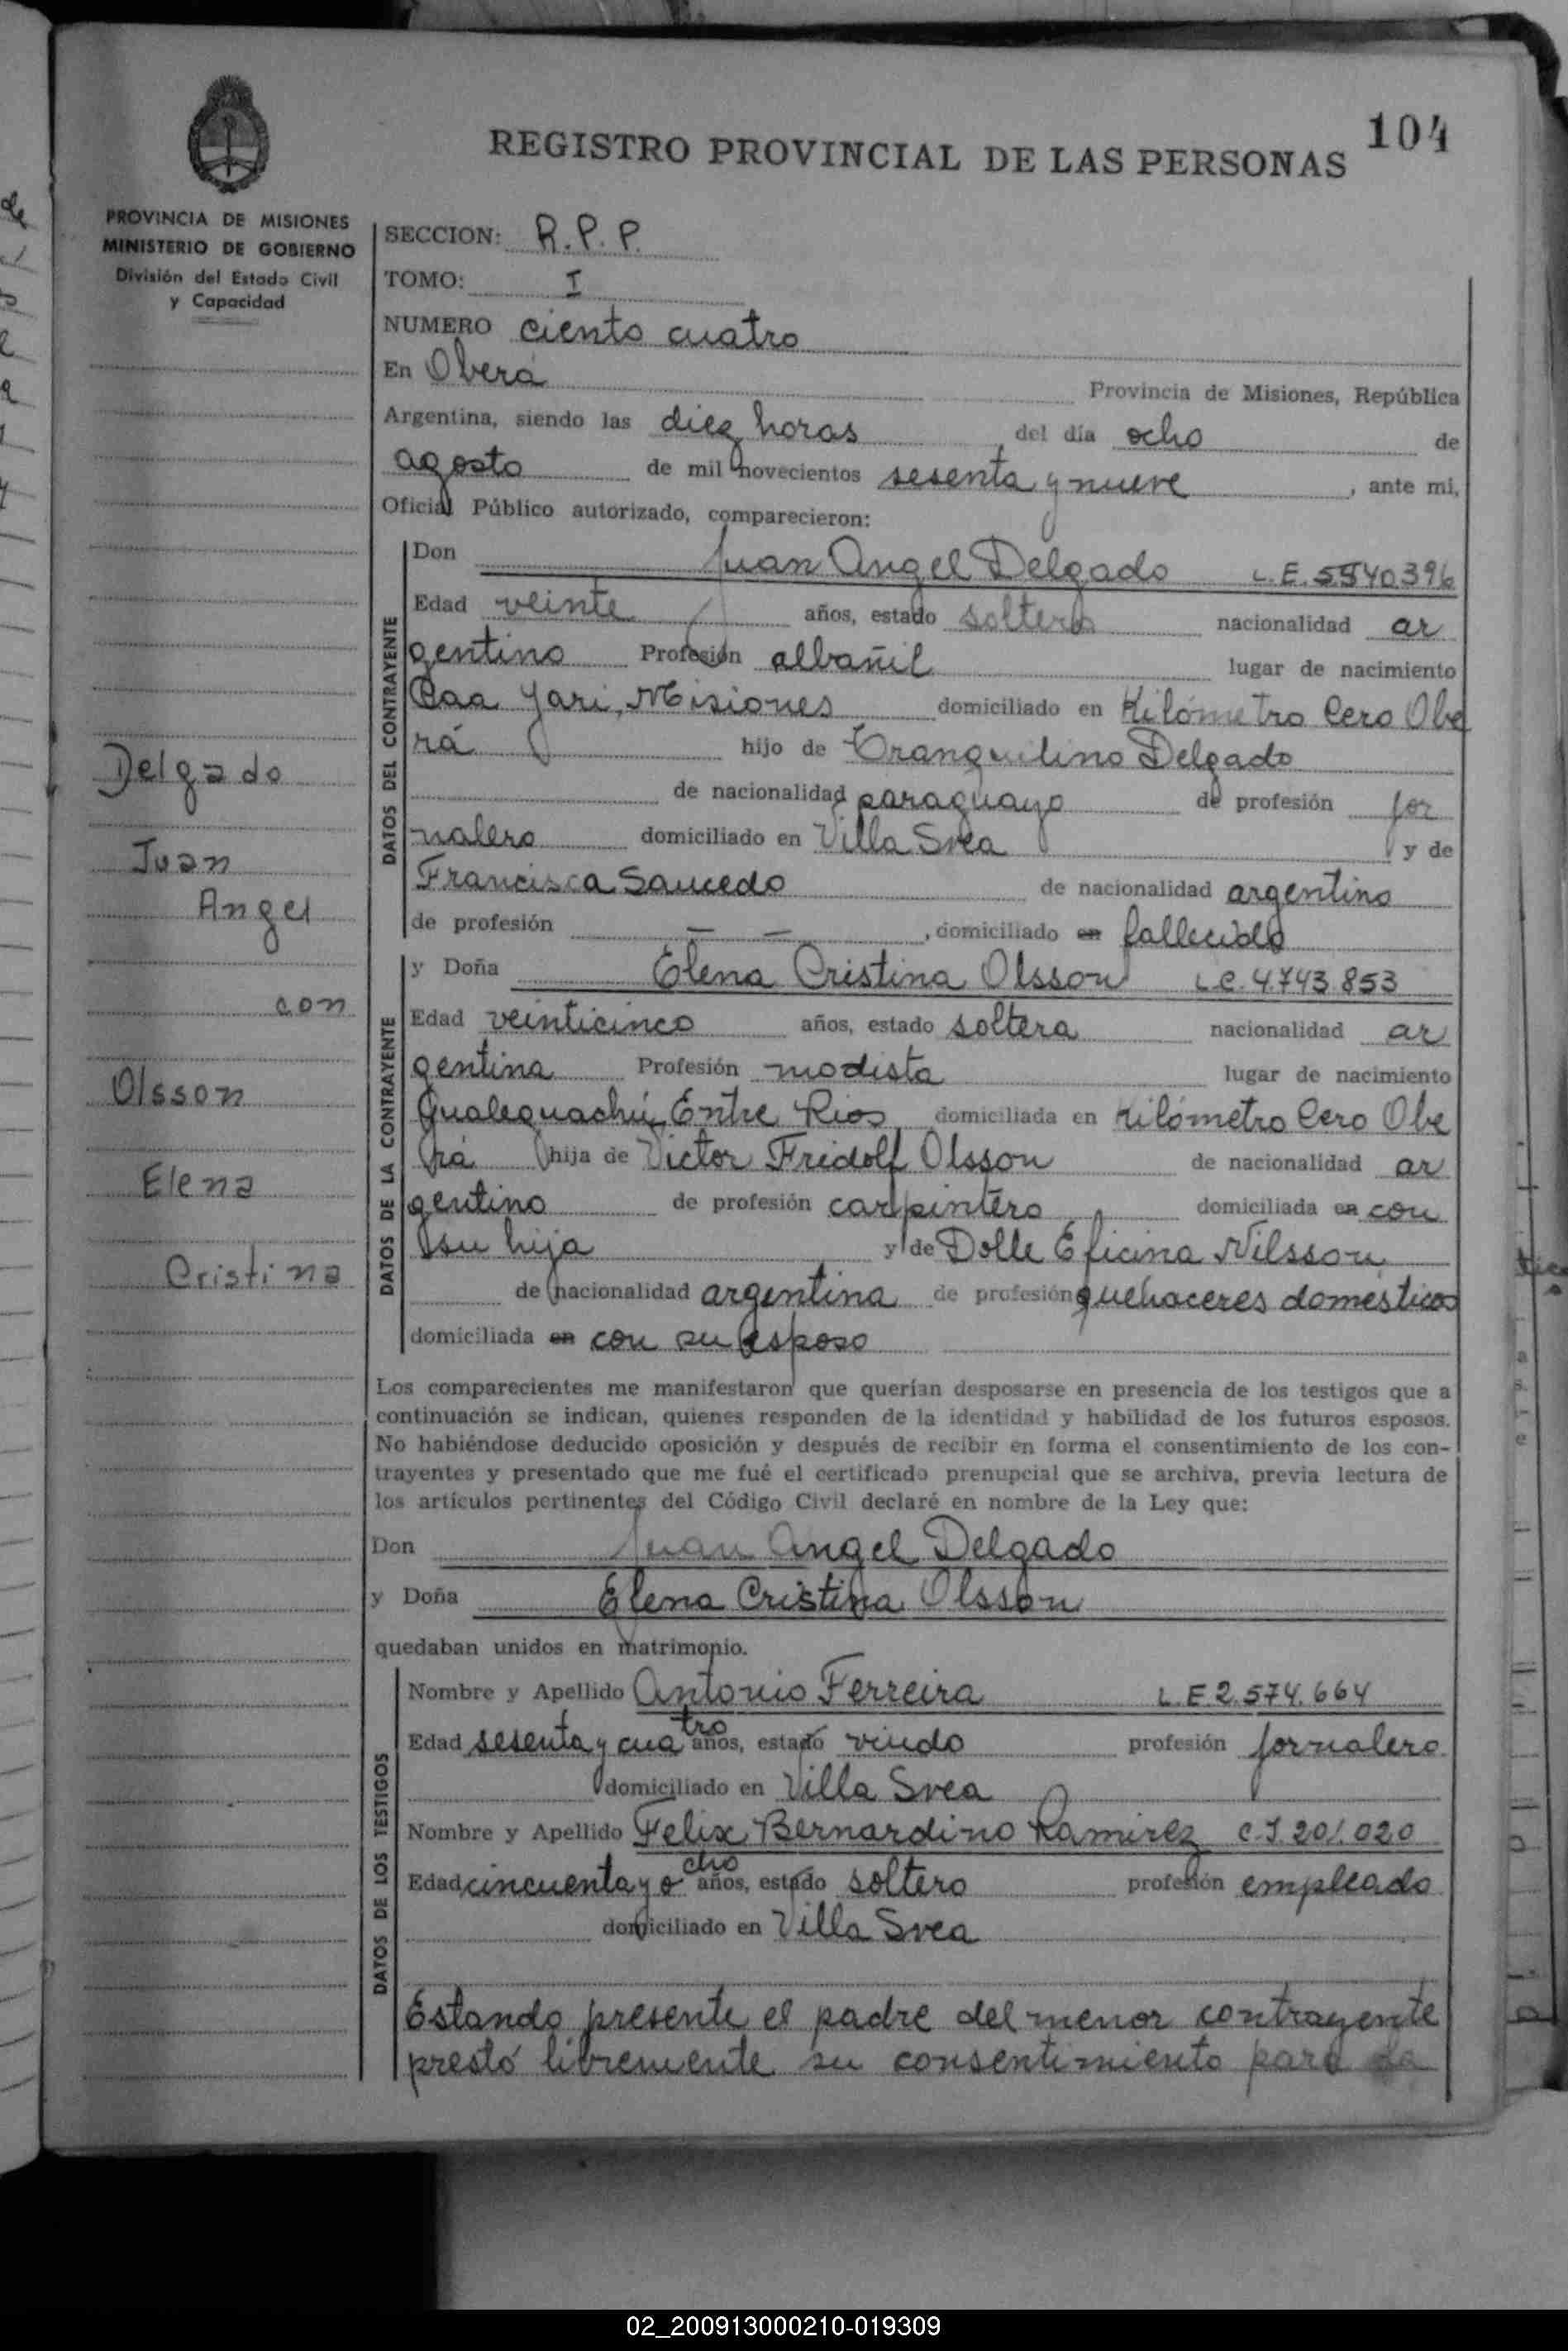 104
REGISTRO PROVINCIAL DE LAS PERSONAS
PROVINCIA DE MISIONES
MINISTERIO DE GOBIERNO
División del Estado Civil
y Capacidad
Delgado
Juan
Angel
con
Olsson
Elena
Cristina
SECCION: R.P.P.
TOMO: I
NUMERO ciento cuatro
En Oberá Provincia de Misiones, República
Argentina, siendo las diez horas del día ocho de
agosto de mil novecientos sesenta y nueve, ante mi,
Oficial Público autorizado, comparecieron:
DATOS DEL CONTRAYENTE
Don Juan Angel Delgado L.E. 5.540.396
Edad veinte años, estado soltero nacionalidad ar
gentino Profesión albañil lugar de nacimiento
Caa Yari, Misiones domiciliado en Kilómetro Cero Obe
rá hijo de Tranquilino Delgado
de nacionalidad paraguayo de profesión jor
nalero domiciliado en Villa Svea y de
Francisca Saucedo de nacionalidad argentina
de profesión — — , domiciliado en fallecida
DATOS DE LA CONTRAYENTE
y Doña Elena Cristina Olsson L.C. 4.743.853
Edad veinticinco años, estado soltera nacionalidad ar
gentina Profesión modista lugar de nacimiento
Gualeguachú, Entre Rios domiciliada en Kilómetro Cero Obe
rá hija de Victor Fridolf Olsson de nacionalidad ar
gentino de profesión carpintero domiciliada en con
su hija y de Dolle Eficina Nilsson
de nacionalidad argentina de profesión quehaceres domésticos
domiciliada en con su esposo
Los comparecientes me manifestaron que querían desposarse en presencia de los testigos que a
continuación se indican, quienes responden de la identidad y habilidad de los futuros esposos.
No habiéndose deducido oposición y después de recibir en forma el consentimiento de los con-
trayentes y presentado que me fué el certificado prenupcial que se archiva, previa lectura de
los artículos pertinentes del Código Civil declaré en nombre de la Ley que:
Don Juan Angel Delgado
y Doña Elena Cristina Olsson
quedaban unidos en matrimonio.
DATOS DE LOS TESTIGOS
Nombre y Apellido Antonio Ferreira L.E. 2.574.664
Edad sesenta y cuatro años, estado viudo profesión jornalero
domiciliado en Villa Svea
Nombre y Apellido Felix Bernardino Ramirez C.I. 201.020
Edad cincuenta y ocho años, estado soltero profesión empleado
domiciliado en Villa Svea
Estando presente el padre del menor contrayente
prestó libremente su consentimiento para la
02_200913000210-019309